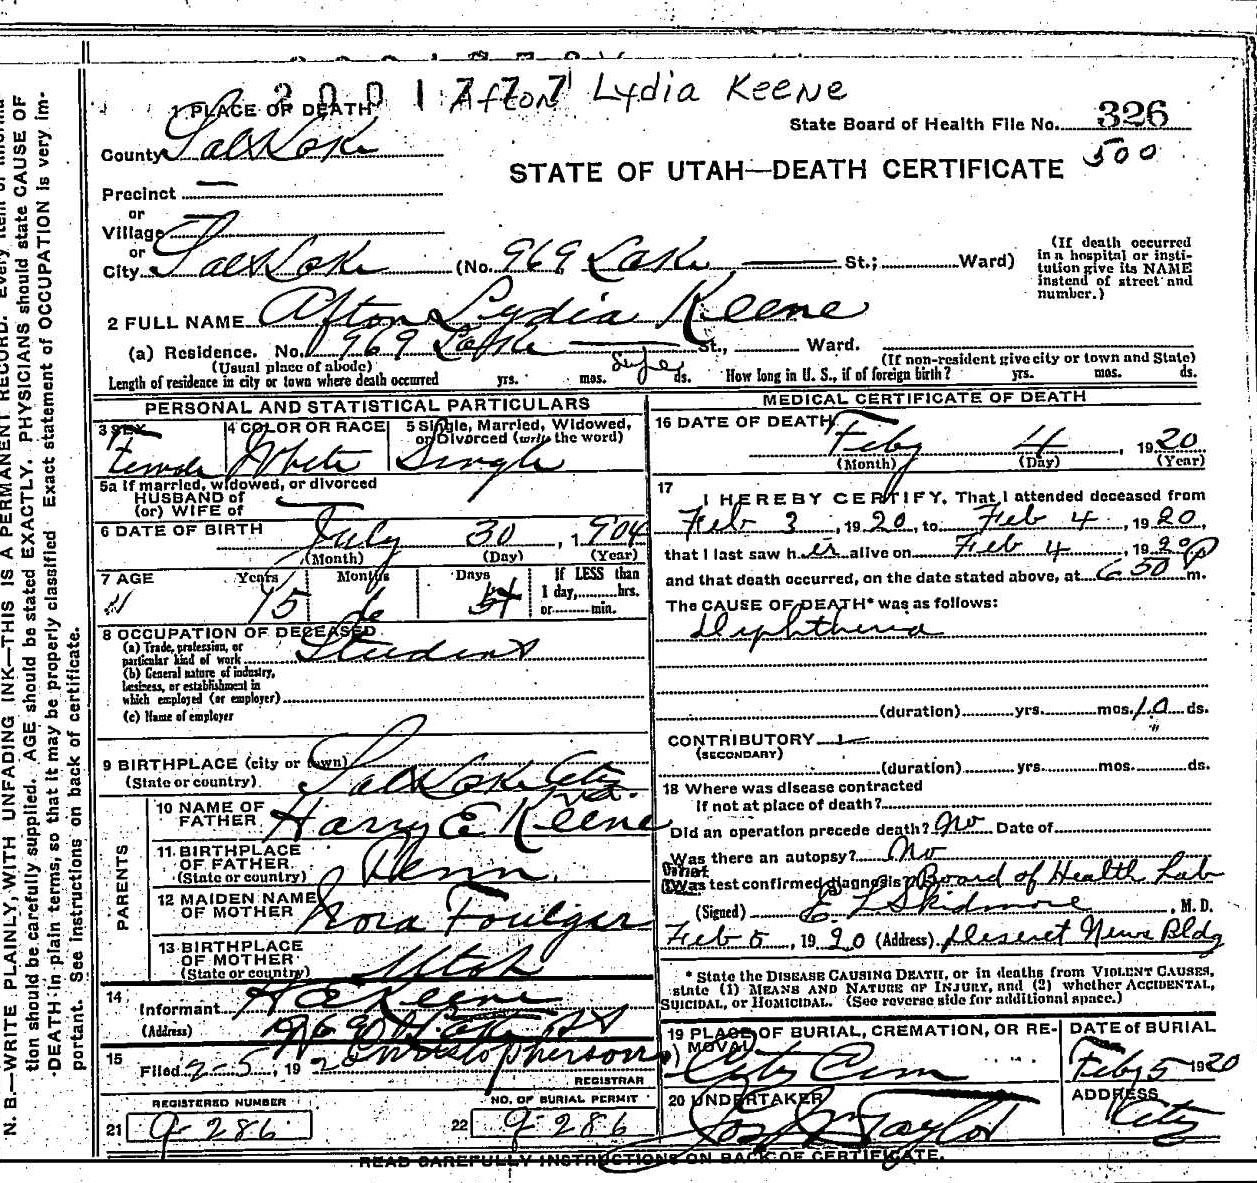 2001777 Afton Lydia Keene
1 PLACE OF DEATH
State Board of Health File No. 326
County Salt Lake
500
STATE OF UTAH—DEATH CERTIFICATE
Precinct —
or
Village —
or
City Salt Lake (No. 969 Lake St.; Ward)
(If death occurred
in a hospital or insti-
tution give its NAME
instead of street and
number.)
2 FULL NAME Afton Lydia Keene
(a) Residence. No. 969 Lake St., Ward.
(Usual place of abode)
(If non-resident give city or town and State)
Length of residence in city or town where death occurred yrs. mos. ds. How long in U. S., if of foreign birth? yrs. mos. ds.
PERSONAL AND STATISTICAL PARTICULARS
3 SEX
Female
4 COLOR OR RACE
White
5 Single, Married, Widowed,
or Divorced (write the word)
Single
5a If married, widowed, or divorced
HUSBAND of
(or) WIFE of —
6 DATE OF BIRTH July 30, 1904
(Month) (Day) (Year)
7 AGE Years Months Days If LESS than
1 day, hrs.
or min.
15 6
8 OCCUPATION OF DECEASED
(a) Trade, profession, or
particular kind of work Student
(b) General nature of industry,
business, or establishment in
which employed (or employer)
(c) Name of employer
9 BIRTHPLACE (city or town) Salt Lake City
(State or country)
PARENTS
10 NAME OF
FATHER Harry E Keene
11 BIRTHPLACE
OF FATHER Penn.
(State or country)
12 MAIDEN NAME
OF MOTHER Nora Foulger
13 BIRTHPLACE
OF MOTHER Utah
(State or country)
14
Informant H E Keene
(Address) 969 Lake St
15
Filed 2-5, 1920 Christopherson
REGISTRAR
REGISTERED NUMBER
21 9-286
NO. OF BURIAL PERMIT
22 9-286
MEDICAL CERTIFICATE OF DEATH
16 DATE OF DEATH Feby 4, 1920
(Month) (Day) (Year)
17
I HEREBY CERTIFY, That I attended deceased from
Feb 3, 1920, to Feb 4, 1920,
that I last saw her alive on Feb 4, 1920
and that death occurred, on the date stated above, at 6 50 p m.
The CAUSE OF DEATH* was as follows:
Diphtheria
(duration) yrs. mos. 10 ds.
CONTRIBUTORY
(SECONDARY)
(duration) yrs. mos. ds.
18 Where was disease contracted
if not at place of death?
Did an operation precede death? No Date of
Was there an autopsy? No
What
test confirmed diagnosis? Board of Health Lab
(Signed) E. L. Skidmore, M. D.
Feb 5, 1920 (Address) Deseret News Bldg
* State the DISEASE CAUSING DEATH, or in deaths from VIOLENT CAUSES,
state (1) MEANS AND NATURE OF INJURY, and (2) whether ACCIDENTAL,
SUICIDAL, or HOMICIDAL. (See reverse side for additional space.)
19 PLACE OF BURIAL, CREMATION, OR RE-
MOVAL
City Cem
DATE of BURIAL
Feby 5 1920
20 UNDERTAKER
Taylor
ADDRESS
City
READ CAREFULLY INSTRUCTIONS ON BACK OF CERTIFICATE.
N. B.—WRITE PLAINLY, WITH UNFADING INK—THIS IS A PERMANENT RECORD. Every item of
tion should be carefully supplied. AGE should be stated EXACTLY. PHYSICIANS should state CAUSE OF
DEATH in plain terms, so that it may be properly classified Exact statement of OCCUPATION is very im-
portant. See instructions on back of certificate.